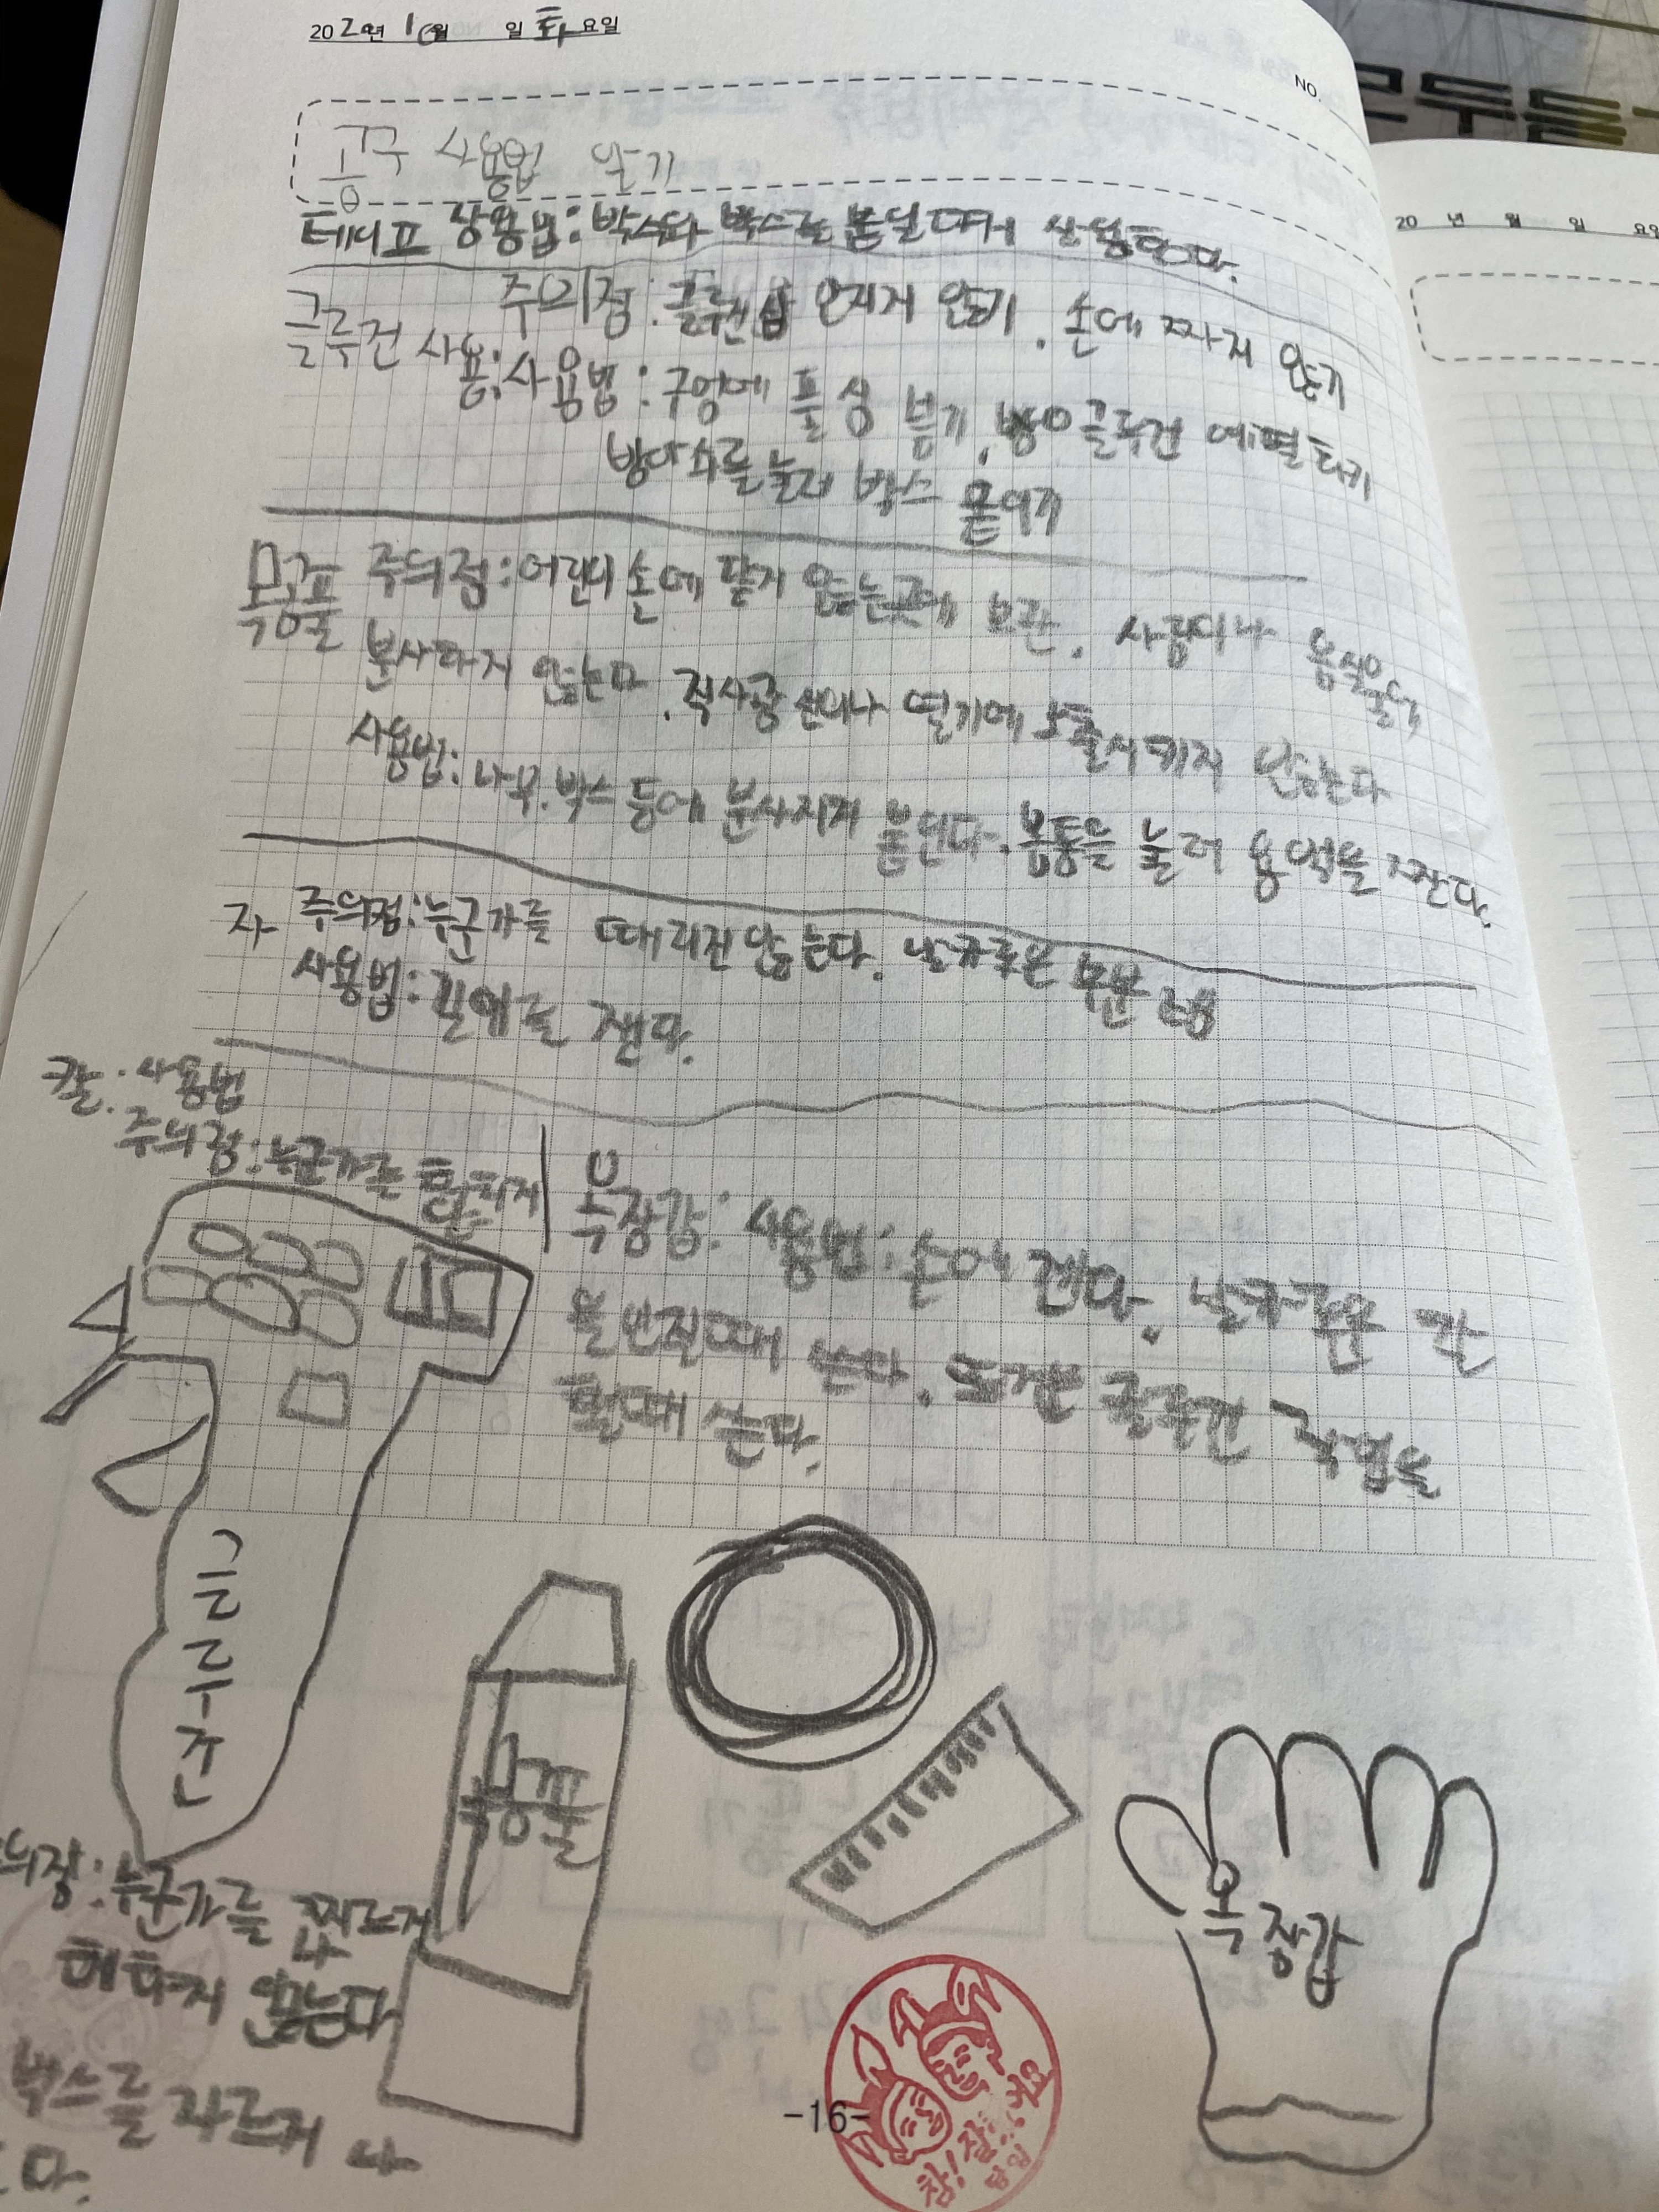 202 년 10월 일 화요일
NO.
공구 사용법 알기
테이프 상용법: 박스와 박스를 붙일때 사용한다.
주의점: 글루건 만지게 않기. 손에 짜지 않기
글루건 사용: 사용법: 구멍에 풀 심 넣기, 글루건 예열
방아쇠를 눌러 박스 붙이기
목공풀 주의점: 어린이 손에 닿지 않는곳에 보관. 사람이나 음식물에
분사하지 않는다. 직사광선이나 열기에 노출시키지 않는다
사용법: 나무, 박스 등에 분사시켜 붙인다. 몸통을 눌러 용액을 짠다.
자 주의점: 누군가를 때리진 않는다. 날카로운 부분
사용법: 길이를 잰다.
칼: 사용법
주의점: 누군가를 해치지
목장갑: 사용법: 손에 낀다. 날카로운 칼
을 만질때 쓴다. 뜨거운 글루건 작업을
할때 쓴다.
글루건
목공풀
목장갑
의점: 누군가를 찌르거나
해하지 않는다
박스를 자르거나
다.
참! 잘했어요
-16-
20 년 월 일 요일